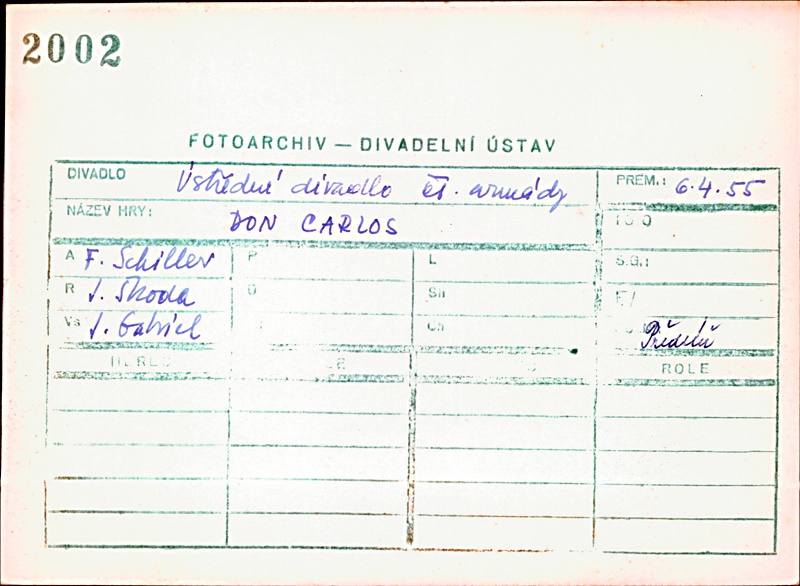 2002
FOTOARCHIV — DIVADELNÍ ÚSTAV
DIVADLO Ústřední divadlo čs. armády PREM.: 6.4.55
NÁZEV HRY: DON CARLOS
A F. Schiller P L S.G.:
R J. Škoda O Sh F/
Vs J. Gabriel Ch
ROLE